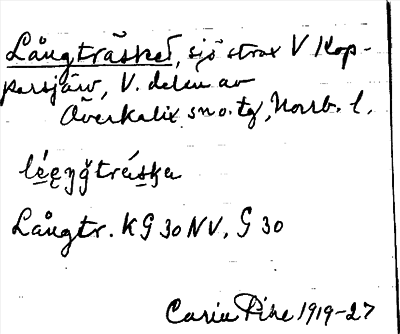 Långträsket, sjö strax V Kop-
parsjärv, V. delen av
Överkalix sn o. tg, Norrb. l.
lé̱e̱ŋğ̯trás̱ka
Långtr. KG 30 NV, G 30
Carin Pihl 1919-27